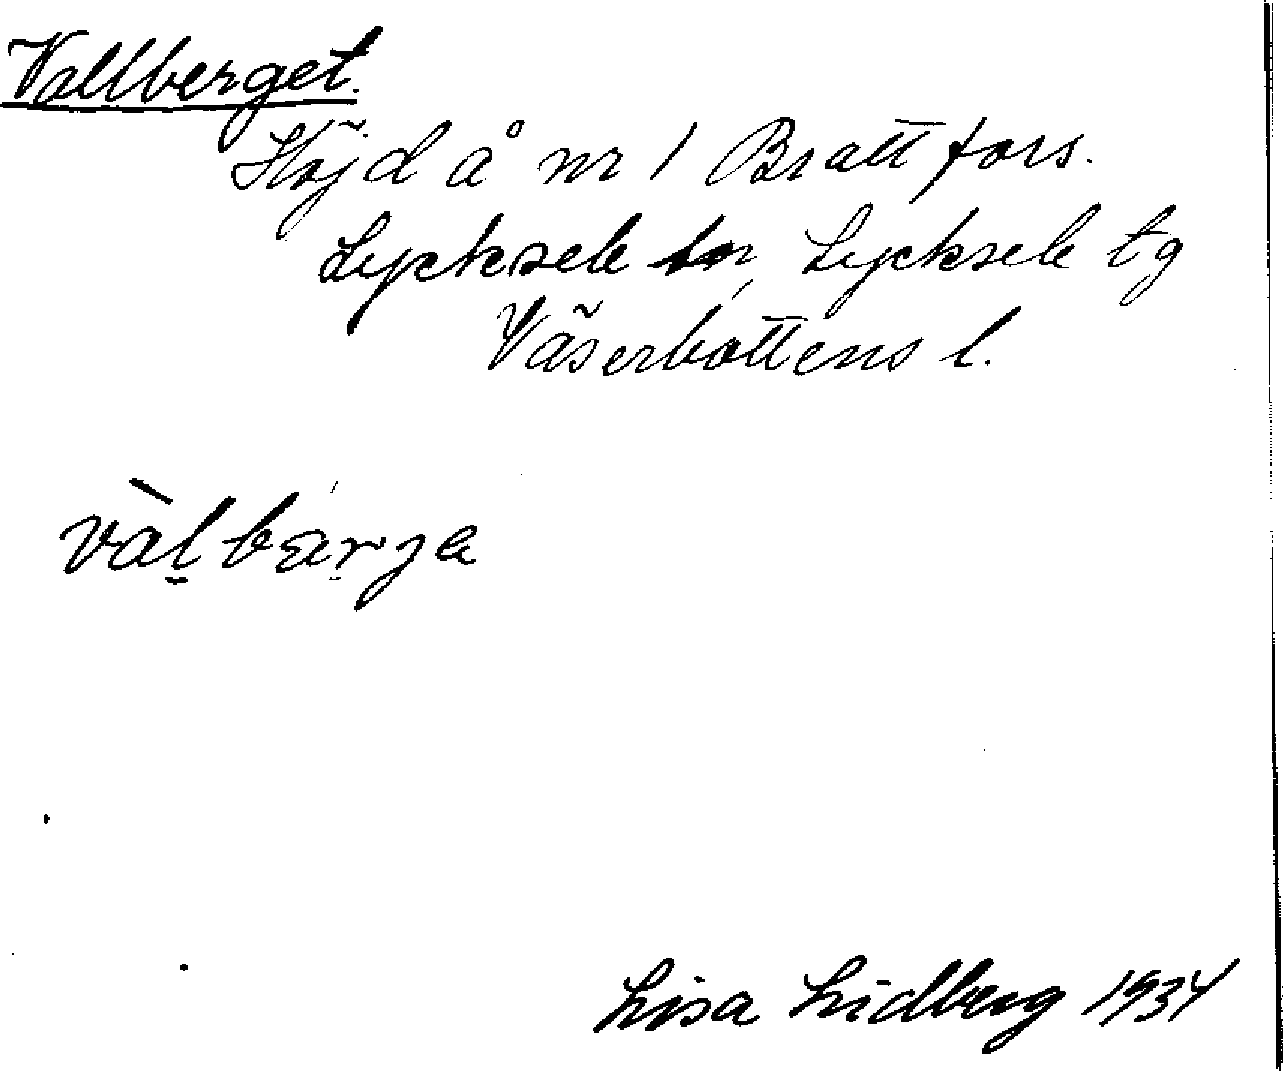 Vallberget.
Höjd å nr 1 Brattfors.
Lycksele sn, Lycksele tg
Väserbottens l.
vàl̠bär̠ja
Lisa Lidberg 1934